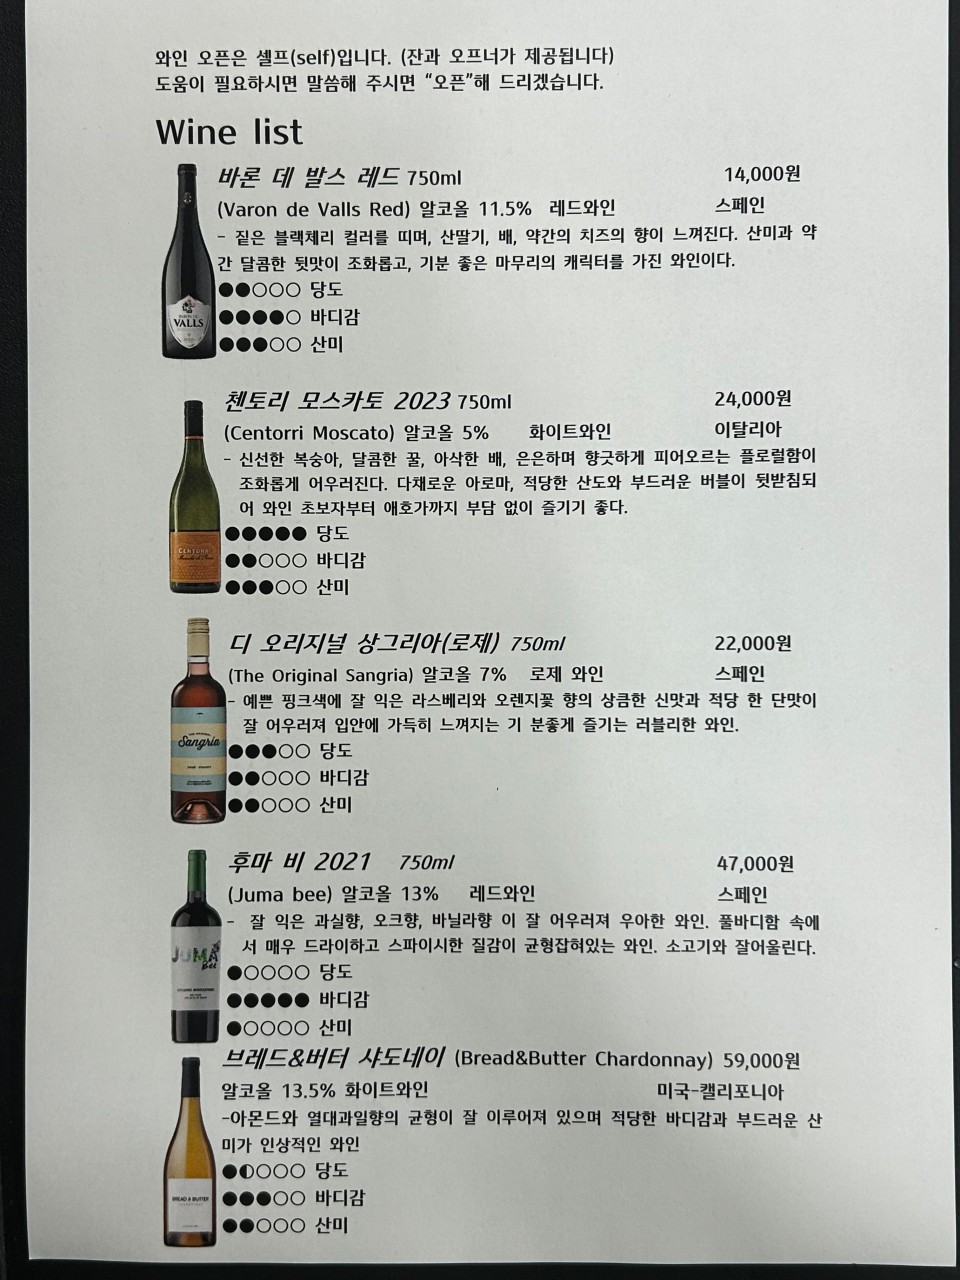 와인 오픈은 셀프(self)입니다. (잔과 오프너가 제공됩니다)
도움이 필요하시면 말씀해 주시면 “오픈”해 드리겠습니다.
Wine list
바론 데 발스 레드 750ml 14,000원
(Varon de Valls Red) 알코올 11.5% 레드와인 스페인
- 짙은 블랙체리 컬러를 띠며, 산딸기, 배, 약간의 치즈의 향이 느껴진다. 산미과 약
간 달콤한 뒷맛이 조화롭고, 기분 좋은 마무리의 캐릭터를 가진 와인이다.
●●○○○ 당도
●●●●○ 바디감
●●●○○ 산미
VALLS
첸토리 모스카토 2023 750ml 24,000원
(Centorri Moscato) 알코올 5% 화이트와인 이탈리아
- 신선한 복숭아, 달콤한 꿀, 아삭한 배, 은은하며 향긋하게 피어오르는 플로럴함이
조화롭게 어우러진다. 다채로운 아로마, 적당한 산도와 부드러운 버블이 뒷받침되
어 와인 초보자부터 애호가까지 부담 없이 즐기기 좋다.
●●●●● 당도
●●○○○ 바디감
●●●○○ 산미
디 오리지널 상그리아(로제) 750ml 22,000원
(The Original Sangria) 알코올 7% 로제 와인 스페인
- 예쁜 핑크색에 잘 익은 라스베리와 오렌지꽃 향의 상큼한 신맛과 적당 한 단맛이
잘 어우러져 입안에 가득히 느껴지는 기 분좋게 즐기는 러블리한 와인.
Sangria
●●●○○ 당도
●●○○○ 바디감
●●○○○ 산미
후마 비 2021 750ml 47,000원
(Juma bee) 알코올 13% 레드와인 스페인
- 잘 익은 과실향, 오크향, 바닐라향 이 잘 어우러져 우아한 와인. 풀바디함 속에
서 매우 드라이하고 스파이시한 질감이 균형잡혀있는 와인. 소고기와 잘어울린다.
JUMA
bee
●○○○○ 당도
●●●●● 바디감
●○○○○ 산미
브레드&버터 샤도네이 (Bread&Butter Chardonnay) 59,000원
알코올 13.5% 화이트와인 미국-캘리포니아
-아몬드와 열대과일향의 균형이 잘 이루어져 있으며 적당한 바디감과 부드러운 산
미가 인상적인 와인
●◐○○○ 당도
●●●○○ 바디감
●●○○○ 산미
BREAD & BUTTER